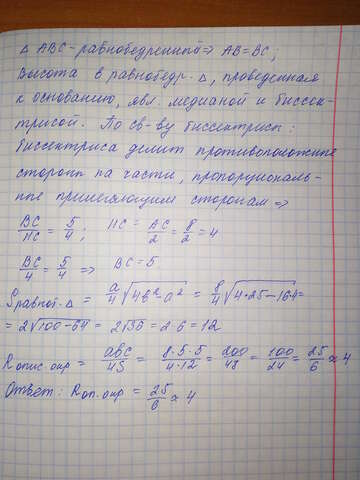 Δ ABC - равнобедренный => AB=BC;
Высота в равнобедр. Δ, проведенная
к основанию, явл. медианой и биссек-
трисой. По св-ву биссектрисы:
биссектриса делит противоположные
стороны на части, пропорциональ-
ные прилегающим сторонам =>
BC/HC = 5/4; HC = AC/2 = 8/2 = 4
BC/4 = 5/4 => BC = 5.
Sравноб. Δ = a/4 √4b²-a² = 8/4 √4·25-164 =
= 2√100-64 = 2√36 = 2·6 = 12
Rопис. окр = abc/4S = 8·5·5/4·12 = 200/48 = 100/24 = 25/6 ≈ 4
Ответ: Rоп. окр = 25/6 ≈ 4